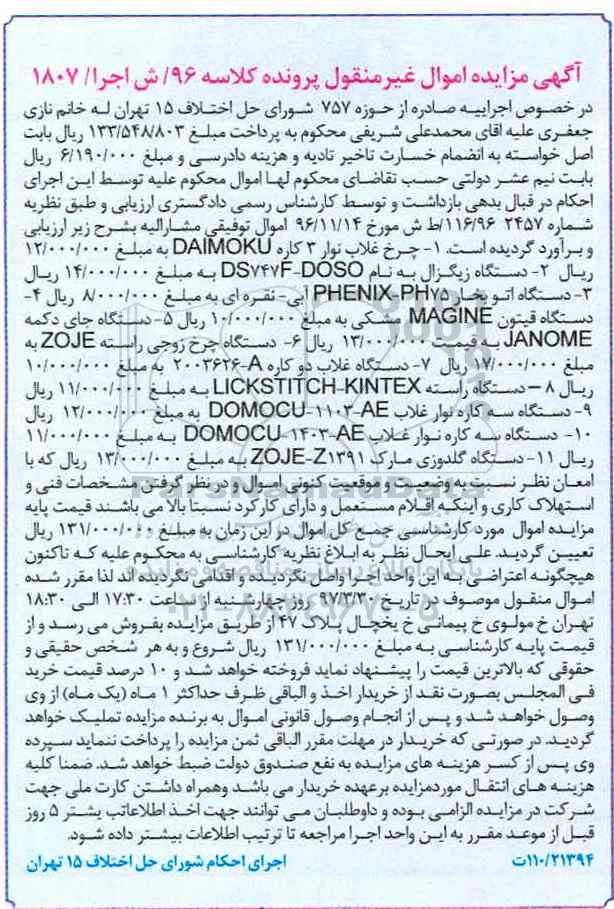 آگهی مزایده اموال غیرمنقول پرونده کلاسه ۹۶/ ش اجرا/ ۱۸۰۷
در خصوص اجراییه صادره از حوزه ۷۵۷ شورای حل اختلاف ۱۵ تهران له خانم نازی
جعفری علیه اقای محمدعلی شریفی محکوم به پرداخت مبلغ ۱۳۳/۵۴۸/۸۰۳ ریال بابت
اصل خواسته به انضمام خسارت تاخیر تادیه و هزینه دادرسی و مبلغ ۶/۱۹۰/۰۰۰ ریال
بابت نیم عشر دولتی حسب تقاضای محکوم لها اموال محکوم علیه توسط این اجرای
احکام در قبال بدهی بازداشت و توسط کارشناس رسمی دادگستری ارزیابی و طبق نظریه
شماره ۲۴۵۷ ۱۱۶/۹۶/ط ش مورخ ۹۶/۱۱/۱۴ اموال توقیفی مشارالیه بشرح زیر ارزیابی
و برآورد گردیده است. ۱- چرخ غلاب نوار ۳ کاره DAIMOKU به مبلغ ۱۲/۰۰۰/۰۰۰
ریال ۲- دستگاه زیگزال به نام DS۷۴۷F-DOSO به مبلغ ۱۴/۰۰۰/۰۰۰ ریال
۳- دستگاه اتو بخار PHENIX-PH۷۵ آبی- نقره ای به مبلغ ۸/۰۰۰/۰۰۰ ریال ۴-
دستگاه قیتون MAGINE مشکی به مبلغ ۱۰/۰۰۰/۰۰۰ ریال ۵- دستگاه جای دکمه
JANOME به قیمت ۱۳/۰۰۰/۰۰۰ ریال ۶- دستگاه چرخ زوجی راسته ZOJE به
مبلغ ۱۷/۰۰۰/۰۰۰ ریال ۷- دستگاه غلاب دو کاره A-۲۰۰۳۶۲۶ به مبلغ ۱۰/۰۰۰/۰۰۰
ریال ۸ – دستگاه راسته LICKSTITCH-KINTEX به مبلغ ۱۱/۰۰۰/۰۰۰ ریال
۹- دستگاه سه کاره نوار غلاب DOMOCU-۱۱۰۳-AE به مبلغ ۱۲/۰۰۰/۰۰۰ ریال
۱۰- دستگاه سه کاره نوار غلاب DOMOCU-۱۴۰۳-AE به مبلغ ۱۱/۰۰۰/۰۰۰
ریال ۱۱- دستگاه گلدوزی مارک ZOJE-Z۱۳۹۱ به مبلغ ۱۳/۰۰۰/۰۰۰ ریال که با
امعان نظر نسبت به وضعیت و موقعیت کنونی اموال و در نظر گرفتن مشخصات فنی و
استهلاک کاری و اینکه اقلام مستعمل و دارای کارکرد نسبتا بالا می باشند قیمت پایه
مزایده اموال مورد کارشناسی جمع کل اموال در این زمان به مبلغ ۱۳۱/۰۰۰/۰۰۰ ریال
تعیین گردید. علی ایحال نظر به ابلاغ نظریه کارشناسی به محکوم علیه که تاکنون
هیچگونه اعتراضی به این واحد اجرا واصل نگردیده و اقدامی نگردیده اند لذا مقرر شده
اموال منقول موصوف در تاریخ ۹۷/۳/۳۰ روز چهارشنبه از ساعت ۱۷:۳۰ الی ۱۸:۳۰
تهران خ مولوی خ پیمانی خ یخچال پلاک ۴۷ از طریق مزایده بفروش می رسد و از
قیمت پایه کارشناسی به مبلغ ۱۳۱/۰۰۰/۰۰۰ ریال شروع و به هر شخص حقیقی و
حقوقی که بالاترین قیمت را پیشنهاد نماید فروخته خواهد شد و ۱۰ درصد قیمت خرید
فی المجلس بصورت نقد از خریدار اخذ و الباقی ظرف حداکثر ۱ ماه (یک ماه) از وی
وصول خواهد شد و پس از انجام وصول قانونی اموال به برنده مزایده تملیک خواهد
گردید. در صورتی که خریدار در مهلت مقرر الباقی ثمن مزایده را پرداخت ننماید سپرده
وی پس از کسر هزینه های مزایده به نفع صندوق دولت ضبط خواهد شد. ضمنا کلیه
هزینه های انتقال موردمزایده برعهده خریدار می باشد وهمراه داشتن کارت ملی جهت
شرکت در مزایده الزامی بوده و داوطلبان می توانند جهت اخذ اطلاعاتب یشتر ۵ روز
قبل از موعد مقرر به این واحد اجرا مراجعه تا ترتیب اطلاعات بیشتر داده شود.
۱۱۰/۲۱۳۹۴ت اجرای احکام شورای حل اختلاف ۱۵ تهران
ParsNamadData
پایگاه اطلاع رسانی مناقصه و مزایده
۰۲۱-۸۸۳۴۹۶۷۰-۵